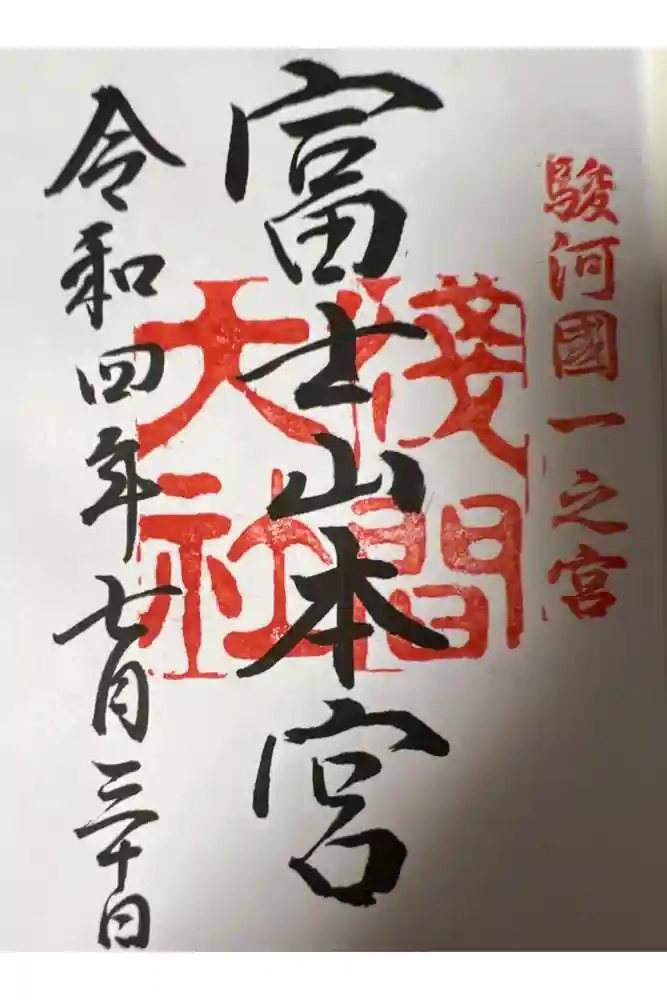 駿河國一之宮
富士山本宮
淺間
大社
令和四年七月三十日